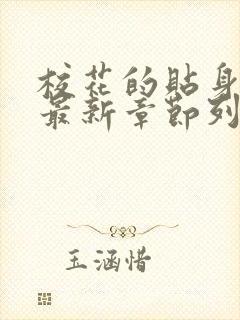 校花的贴身
最新章节列
玉涵惜